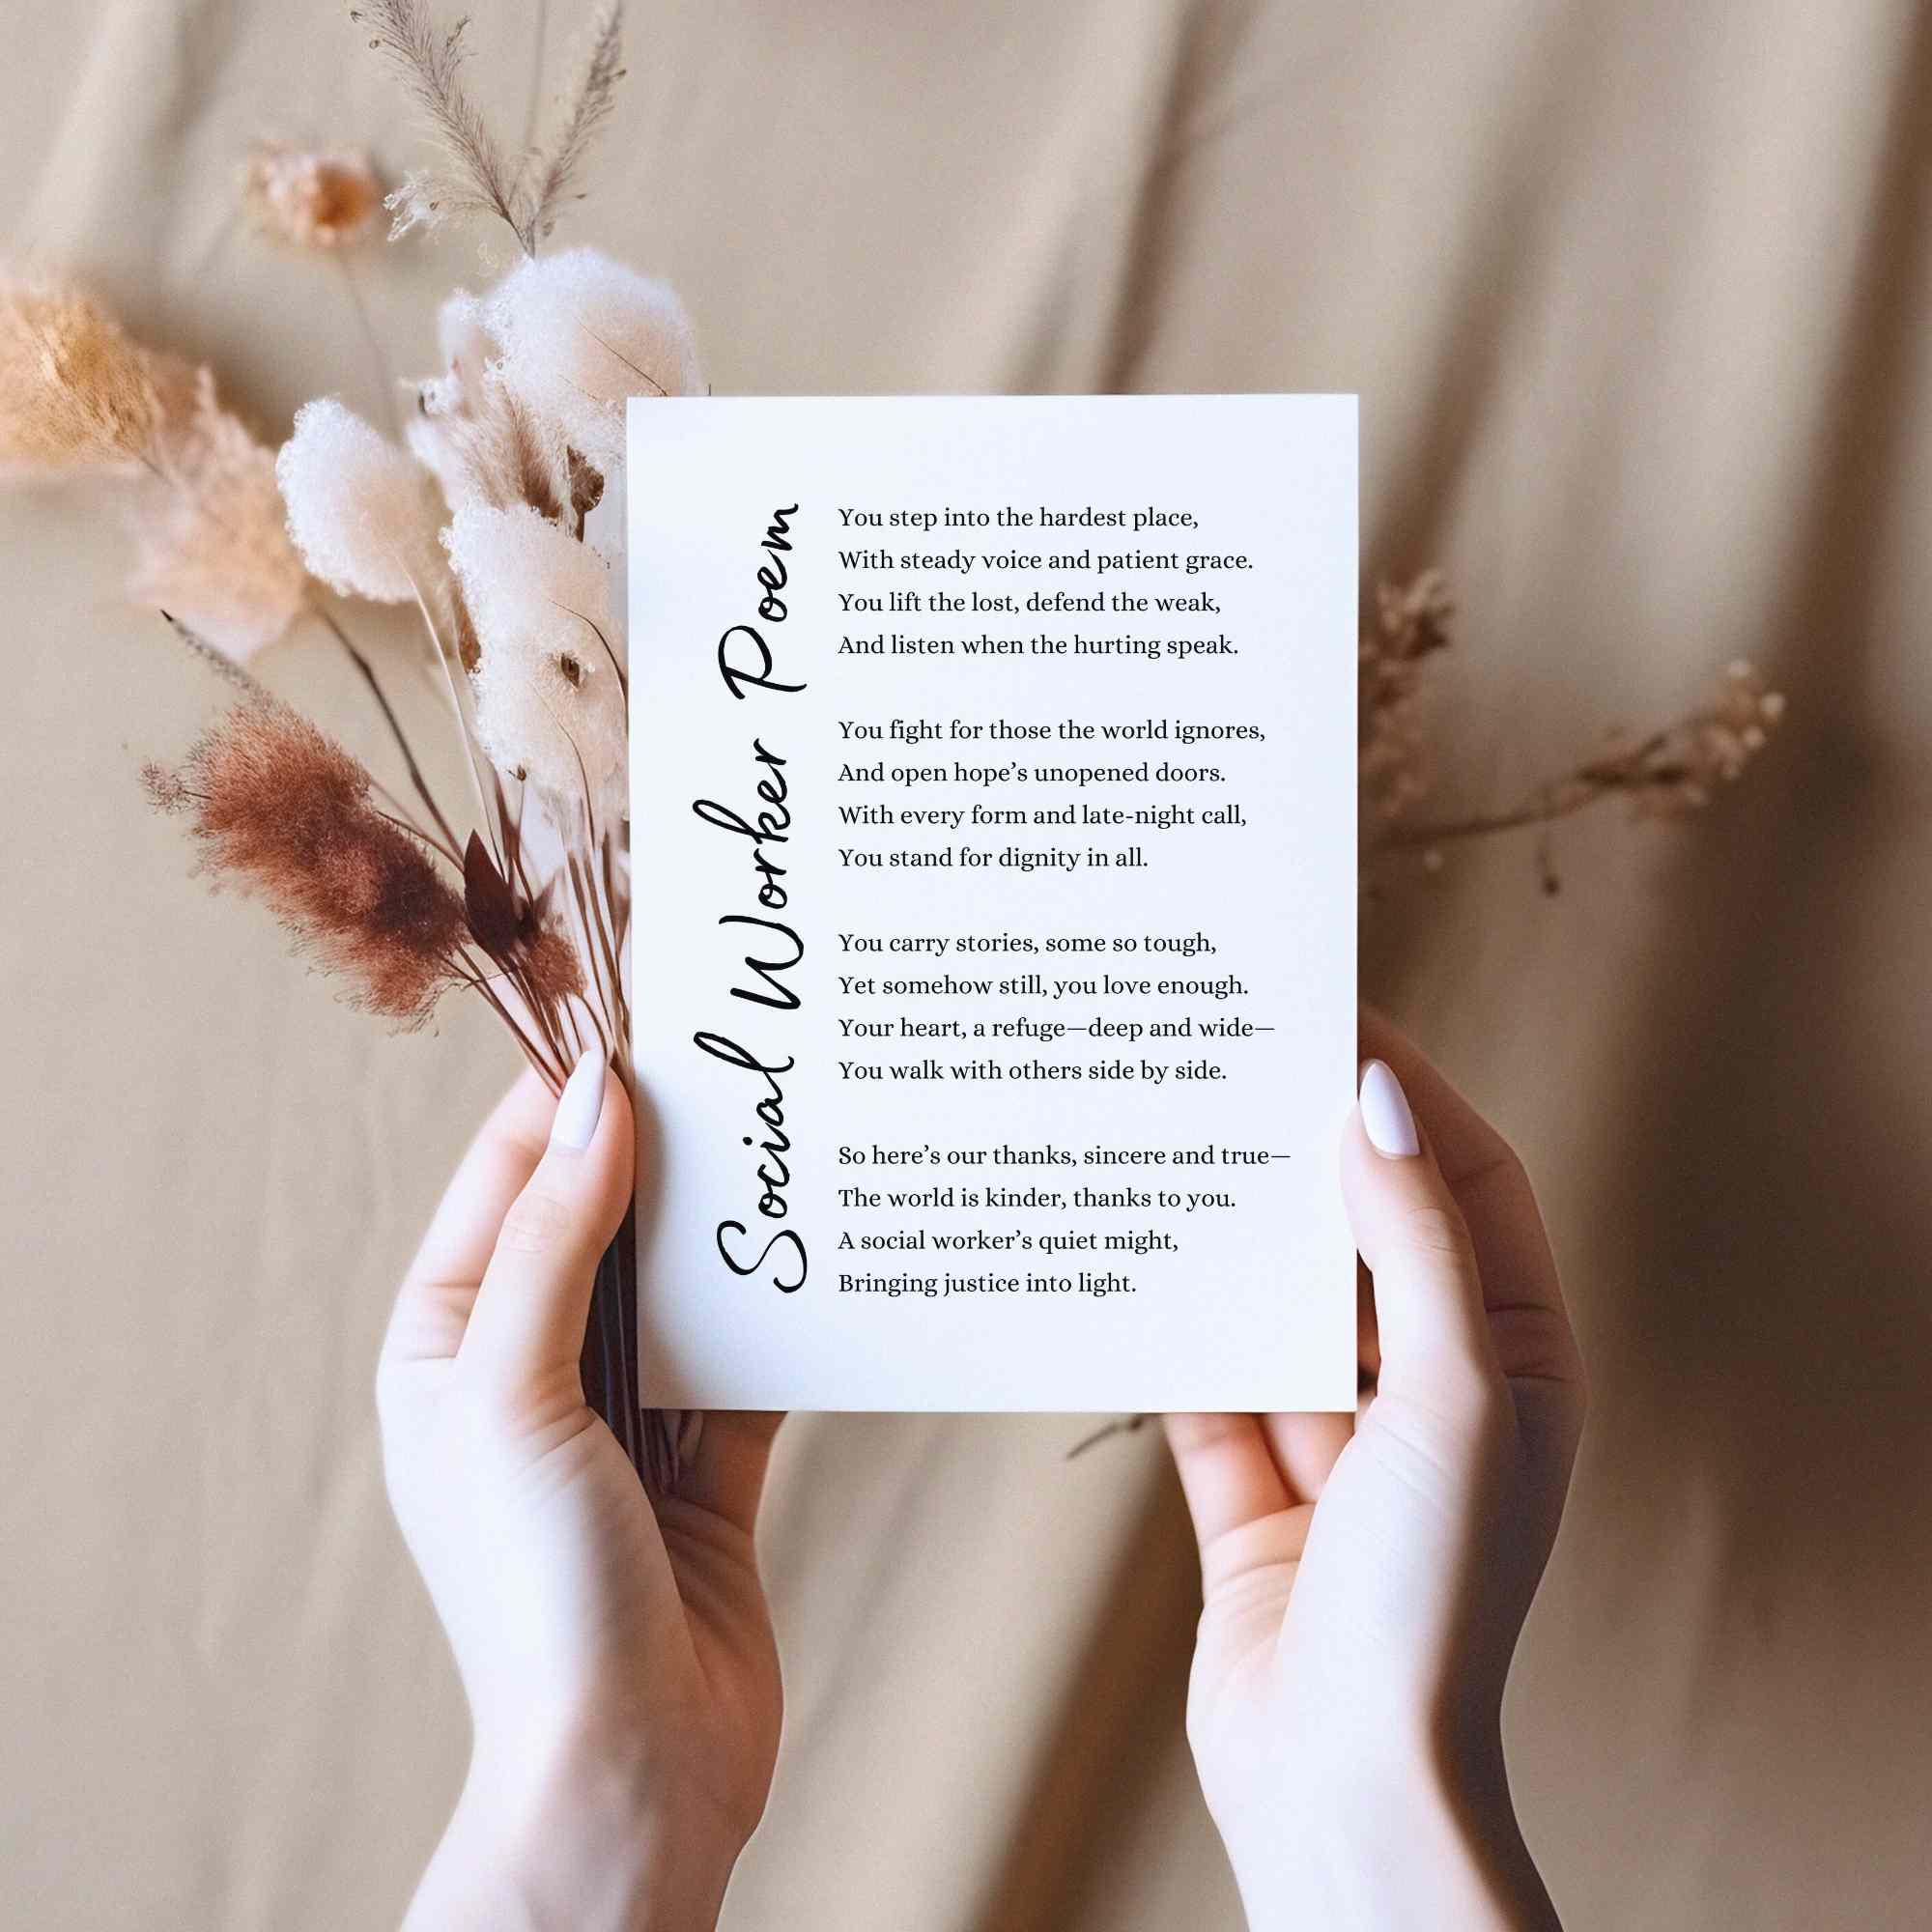 Social Worker Poem
You step into the hardest place,
With steady voice and patient grace.
You lift the lost, defend the weak,
And listen when the hurting speak.
You fight for those the world ignores,
And open hope’s unopened doors.
With every form and late-night call,
You stand for dignity in all.
You carry stories, some so tough,
Yet somehow still, you love enough.
Your heart, a refuge—deep and wide—
You walk with others side by side.
So here’s our thanks, sincere and true—
The world is kinder, thanks to you.
A social worker’s quiet might,
Bringing justice into light.